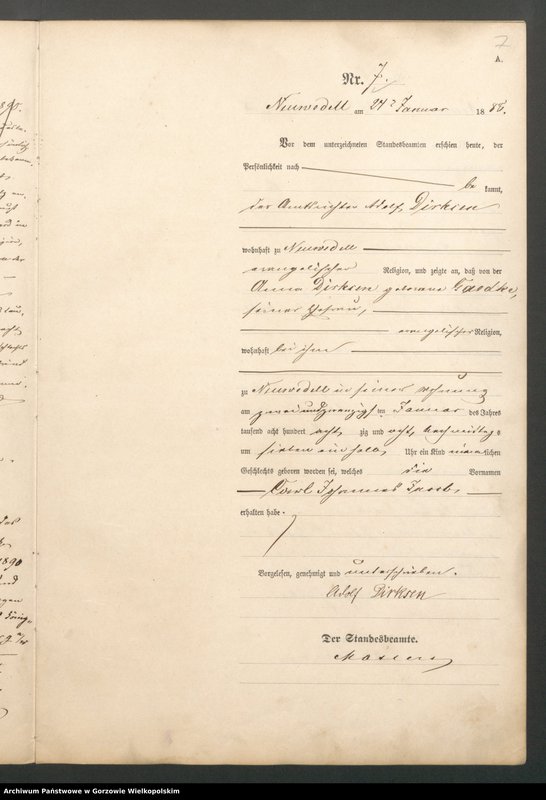 7
A.
Nr. 7.
Neuwedell am 24ⁿ Januar 1888.
Vor dem unterzeichneten Standesbeamten erschien heute, der
Persönlichkeit nach
bekannt,
der Amtsrichter Adolf Dirksen
wohnhaft zu Neuwedell
evangelischer Religion, und zeigte an, daß von der
Anna Dirksen geborene Gaedke,
seiner Ehefrau,
evangelischer Religion,
wohnhaft bei ihm
zu Neuwedell in seiner Wohnung
am zwei und zwanzigsten Januar des Jahres
tausend acht hundert achtzig und acht, Nachmittags
um sieben ein halb Uhr ein Kind männlichen
Geschlechts geboren worden sei, welches die Vornamen
Carl Johannes
erhalten habe.
Vorgelesen, genehmigt und unterschrieben.
Adolf Dirksen
Der Standesbeamte.
1890
Archiwum Państwowe w Gorzowie Wielkopolskim